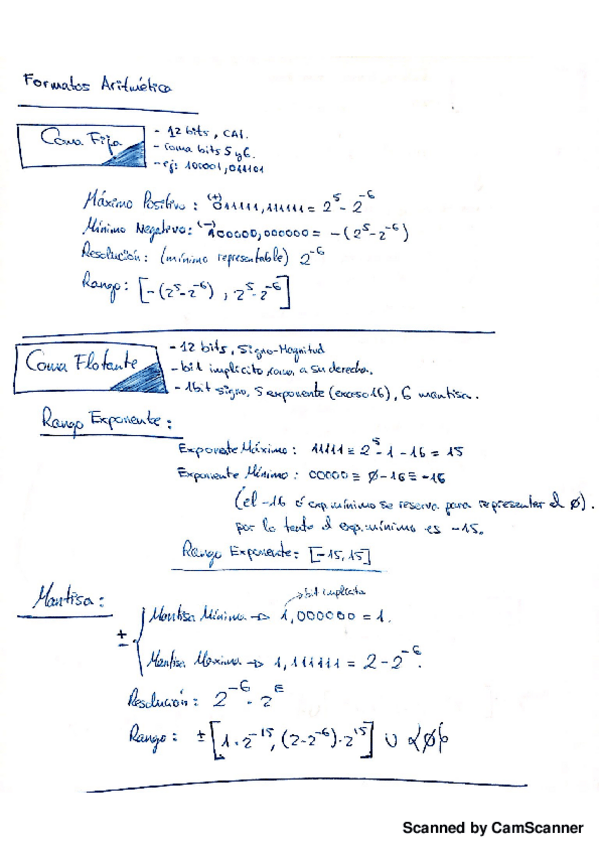 Formatos Aritmética
Coma Fija
- 12 bits, CA1.
- coma bits 5 y 6.
- ej: 100001,011101
Máximo Positivo: (+) 011111,111111 = 2^5 - 2^-6
Mínimo Negativo: (-) 100000,000000 = -(2^5-2^-6)
Resolución: (mínimo representable) 2^-6
Rango: [-(2^5-2^-6) , 2^5-2^-6]
Coma Flotante
- 12 bits, Signo-Magnitud
- bit implícito coma a su derecha.
- 1bit signo, 5 exponente (exceso16), 6 mantisa.
Rango Exponente:
Exponente Máximo: 11111 ≡ 2^5-1-16 = 15
Exponente Mínimo: 00000 ≡ Ø-16 ≡ -16
(el -16 ó exp.mínimo se reserva para representar el Ø).
por lo tanto el exp.mínimo es -15.
Rango Exponente: [-15,15]
Mantisa:
bit implícito
± { Mantisa Mínima → 1,000000 = 1.
Mantisa Maxima → 1,111111 = 2-2^-6.
Resolución: 2^-6 · 2^E
Rango: ± [1·2^-15, (2-2^-6)·2^15] ∪ {Ø}
Scanned by CamScanner